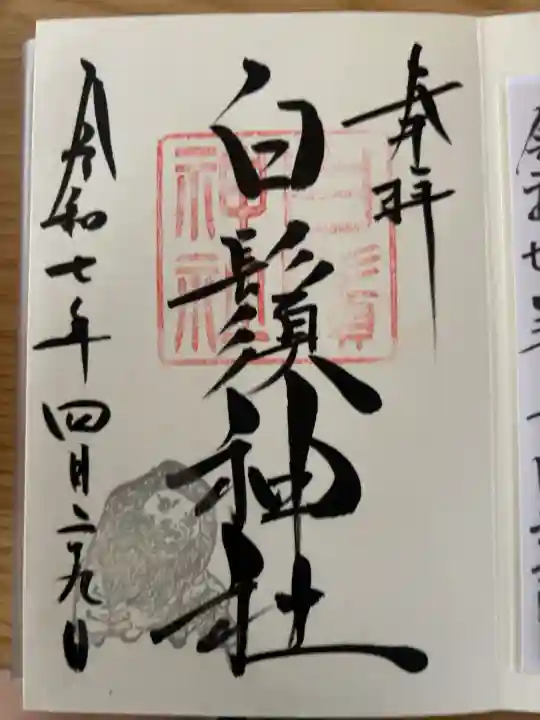 奉拝
白鬚神社
令和七年四月二十九日